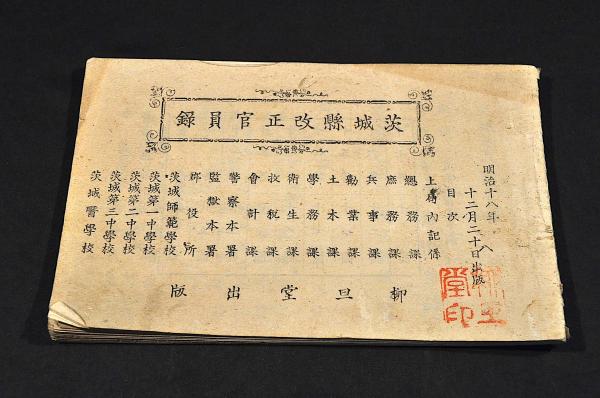 茨城縣改正官員錄
明治十八年
十二月二十日出版
目次
上局内記係
總務課
庶務課
兵事課
勸業課
土木課
學務課
衛生課
收税課
會計課
警察本署
監獄本署
郡役所
茨城師範學校
茨城第一中學校
茨城第二中學校
茨城第三中學校
茨城醫學校
柳旦堂出版
柳旦
堂印